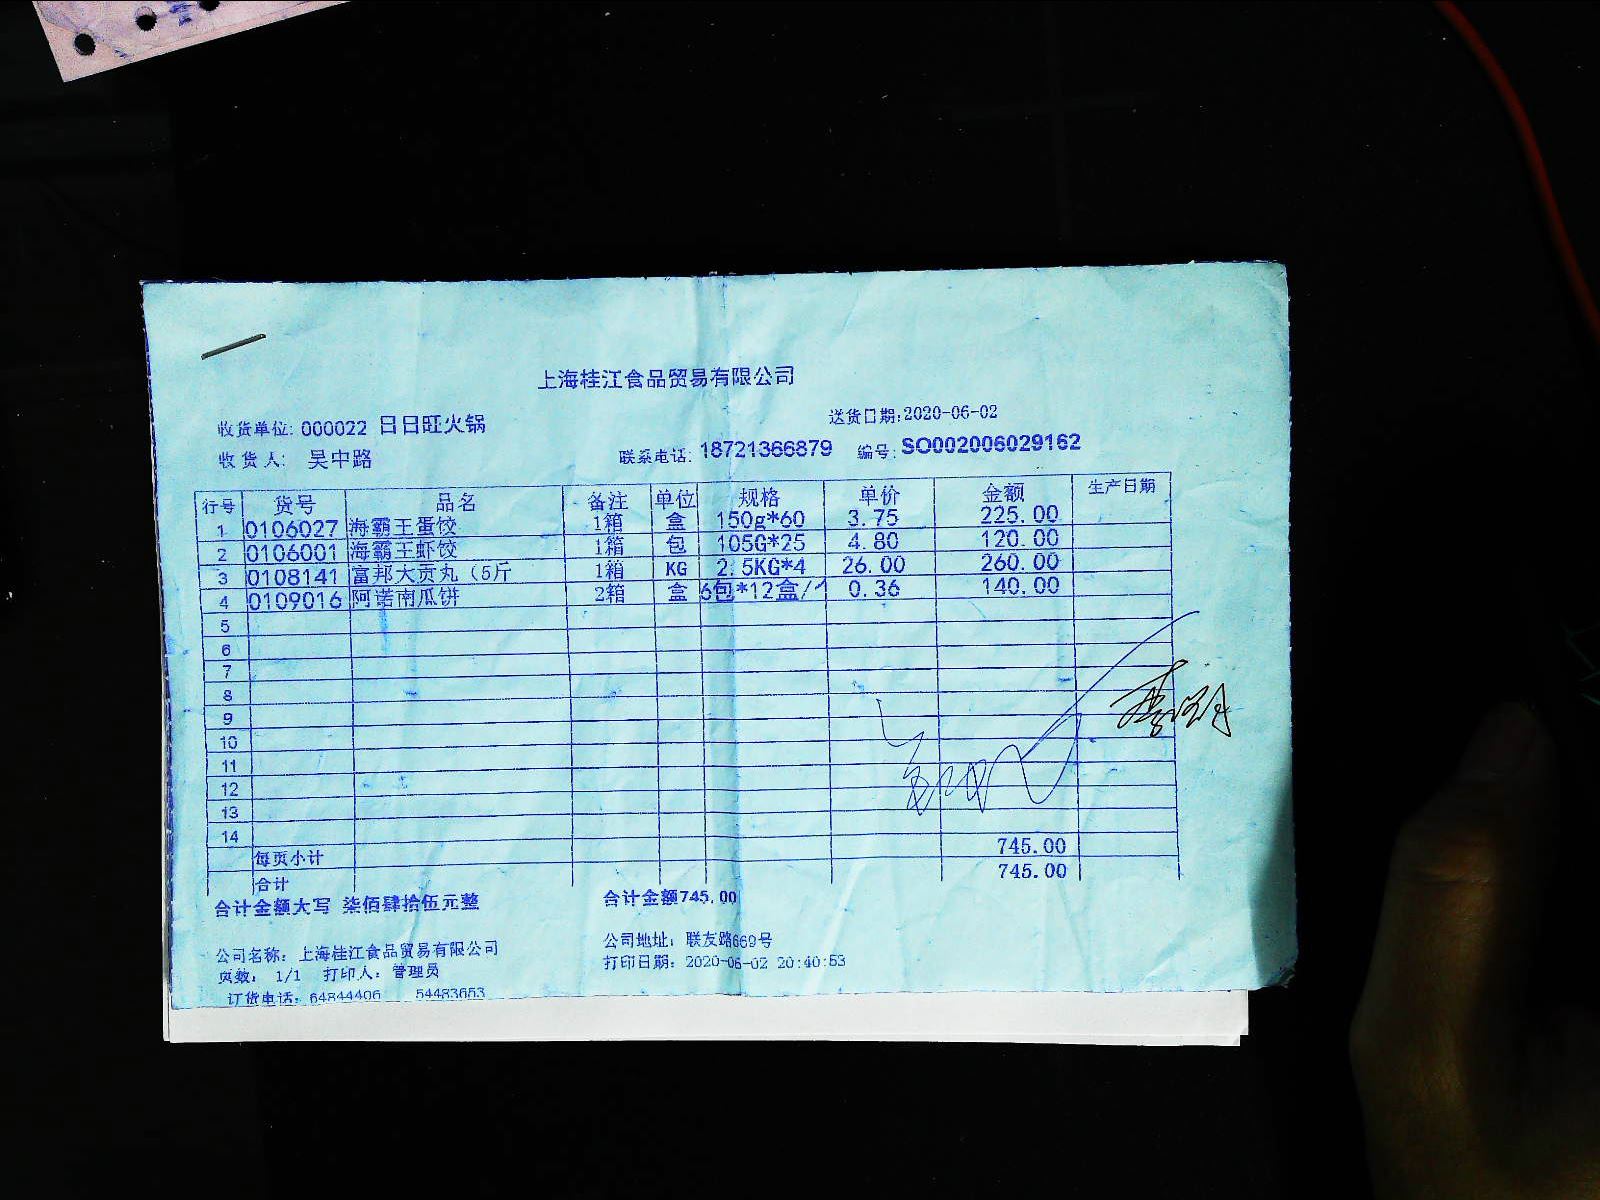 上海桂江食品贸易有限公司
收货单位: 000022 日日旺火锅 送货日期:2020-06-02
收货人: 吴中路 联系电话: 18721366879 编号: SO002006029162
行号 货号 品名 备注 单位 规格 单价 金额 生产日期
1 0106027 海霸王蛋饺 1箱 盒 150g*60 3.75 225.00
2 0106001 海霸王虾饺 1箱 包 105G*25 4.80 120.00
3 0108141 富邦大贡丸（5斤 1箱 KG 2.5KG*4 26.00 260.00
4 0109016 阿诺南瓜饼 2箱 盒 6包*12盒/1 0.36 140.00
5
6
7
8
9
10
11
12
13
14
每页小计 745.00
合计 745.00
合计金额大写 柒佰肆拾伍元整 合计金额745.00
公司名称: 上海桂江食品贸易有限公司 公司地址: 联友路669号
页数: 1/1 打印人: 管理员 打印日期: 2020-06-02 20:40:53
订货电话: 64844406 54483653